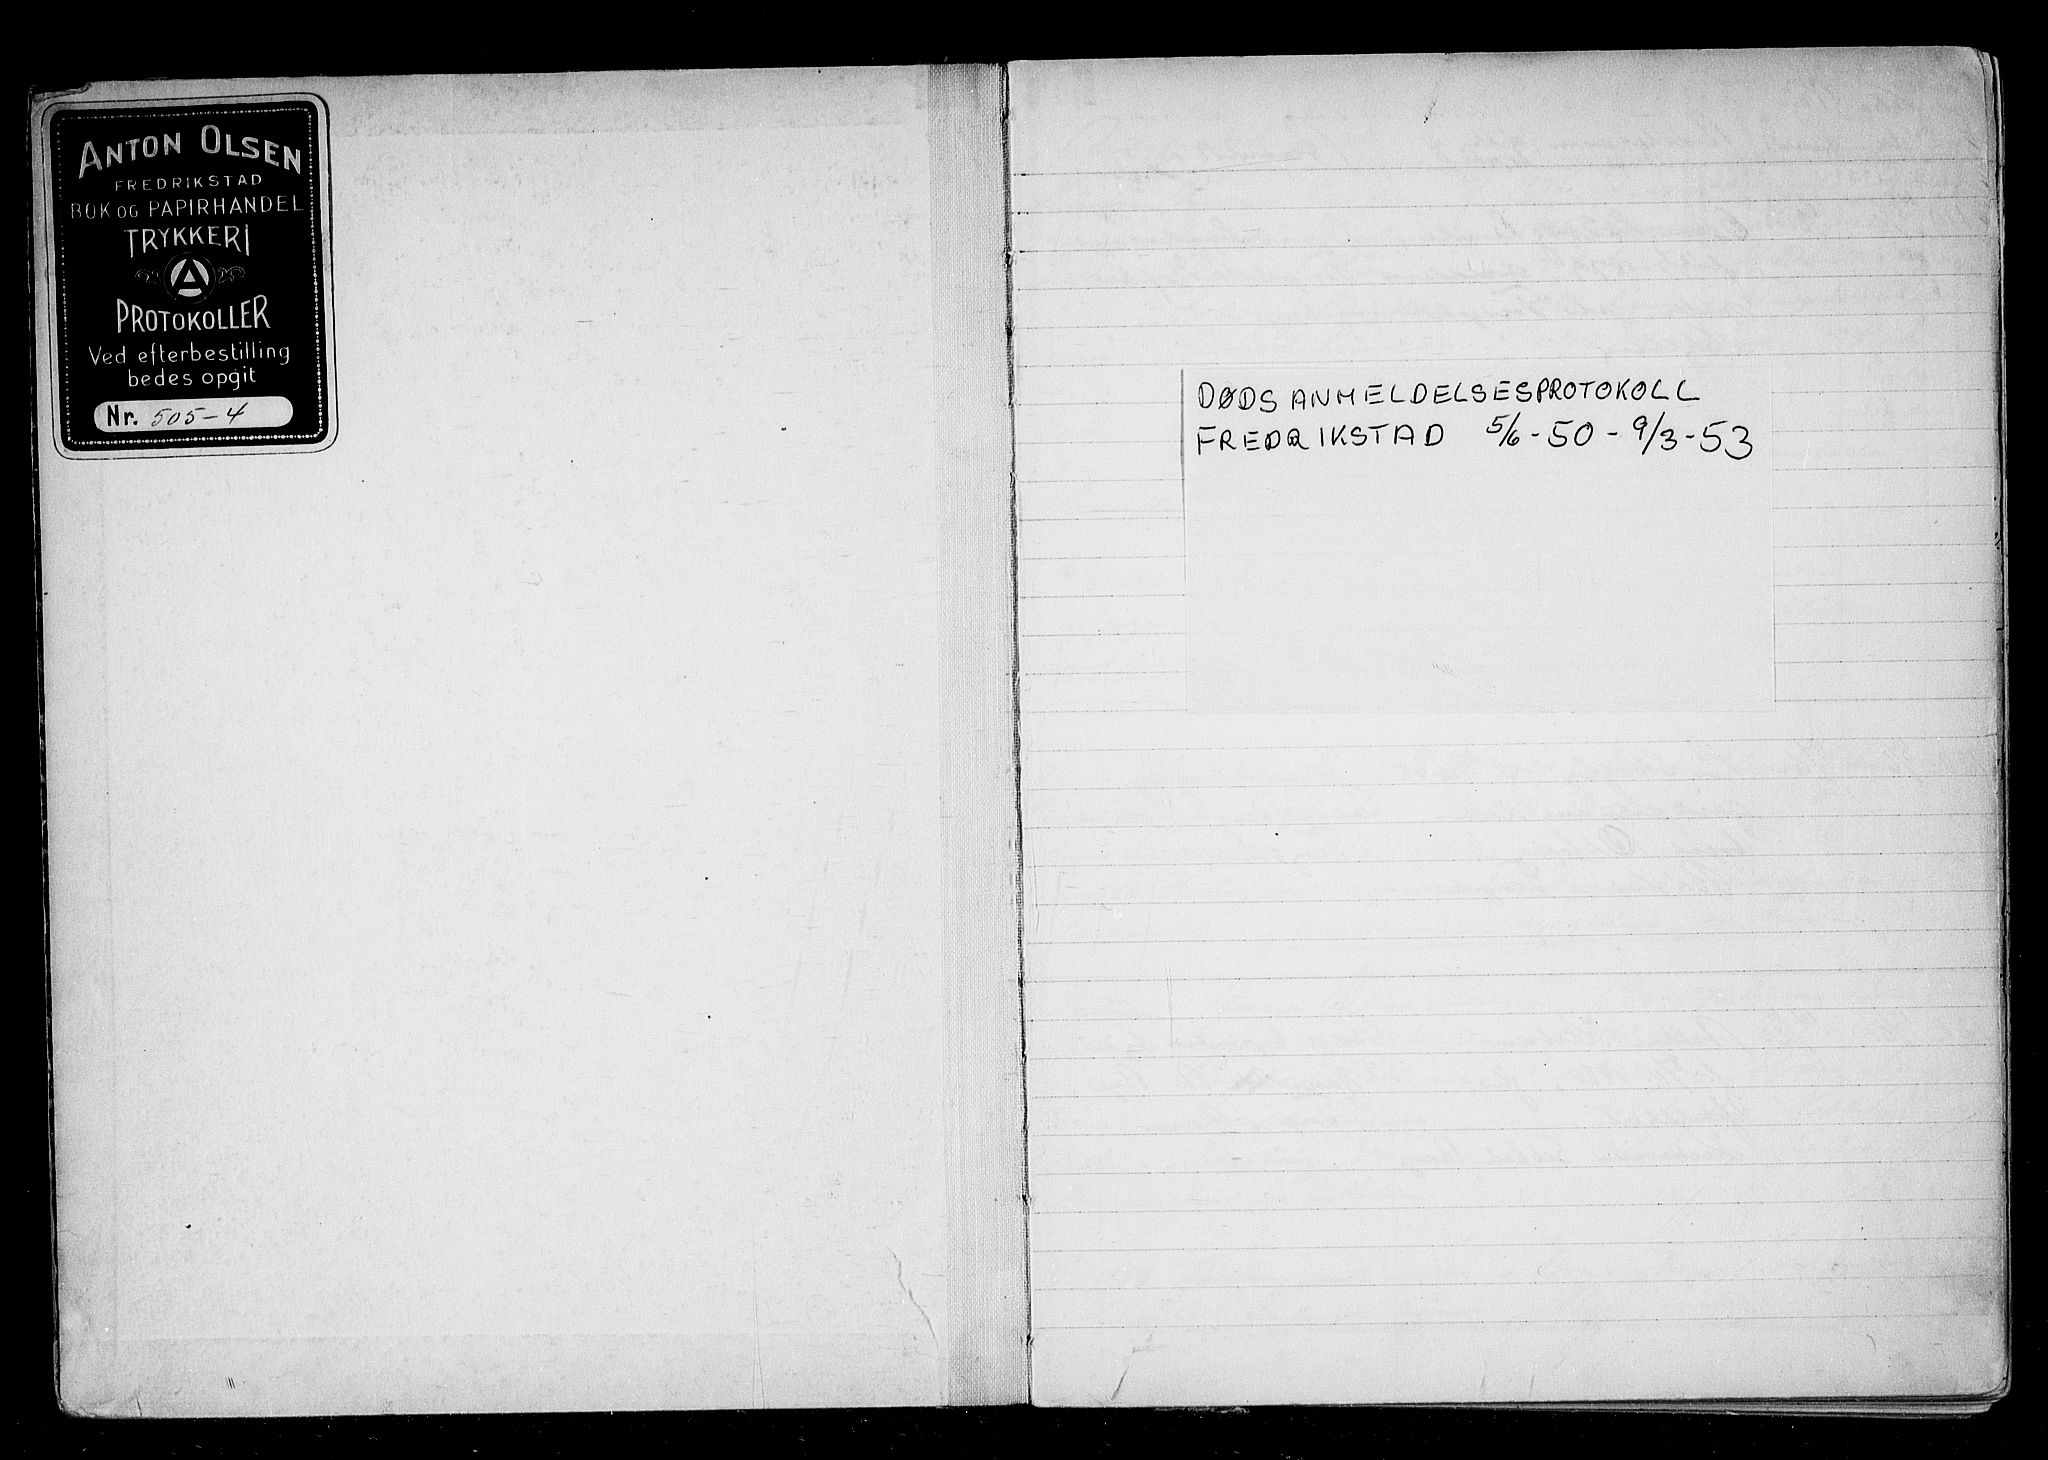 ANTON OLSEN
FREDRIKSTAD
BOK OG PAPIRHANDEL
TRYKKERI
PROTOKOLLER
Ved efterbestilling
bedes opgit
Nr. 505-4
DØDSANMELDELSESPROTOKOLL
FREDRIKSTAD 5/6-50-9/3-53